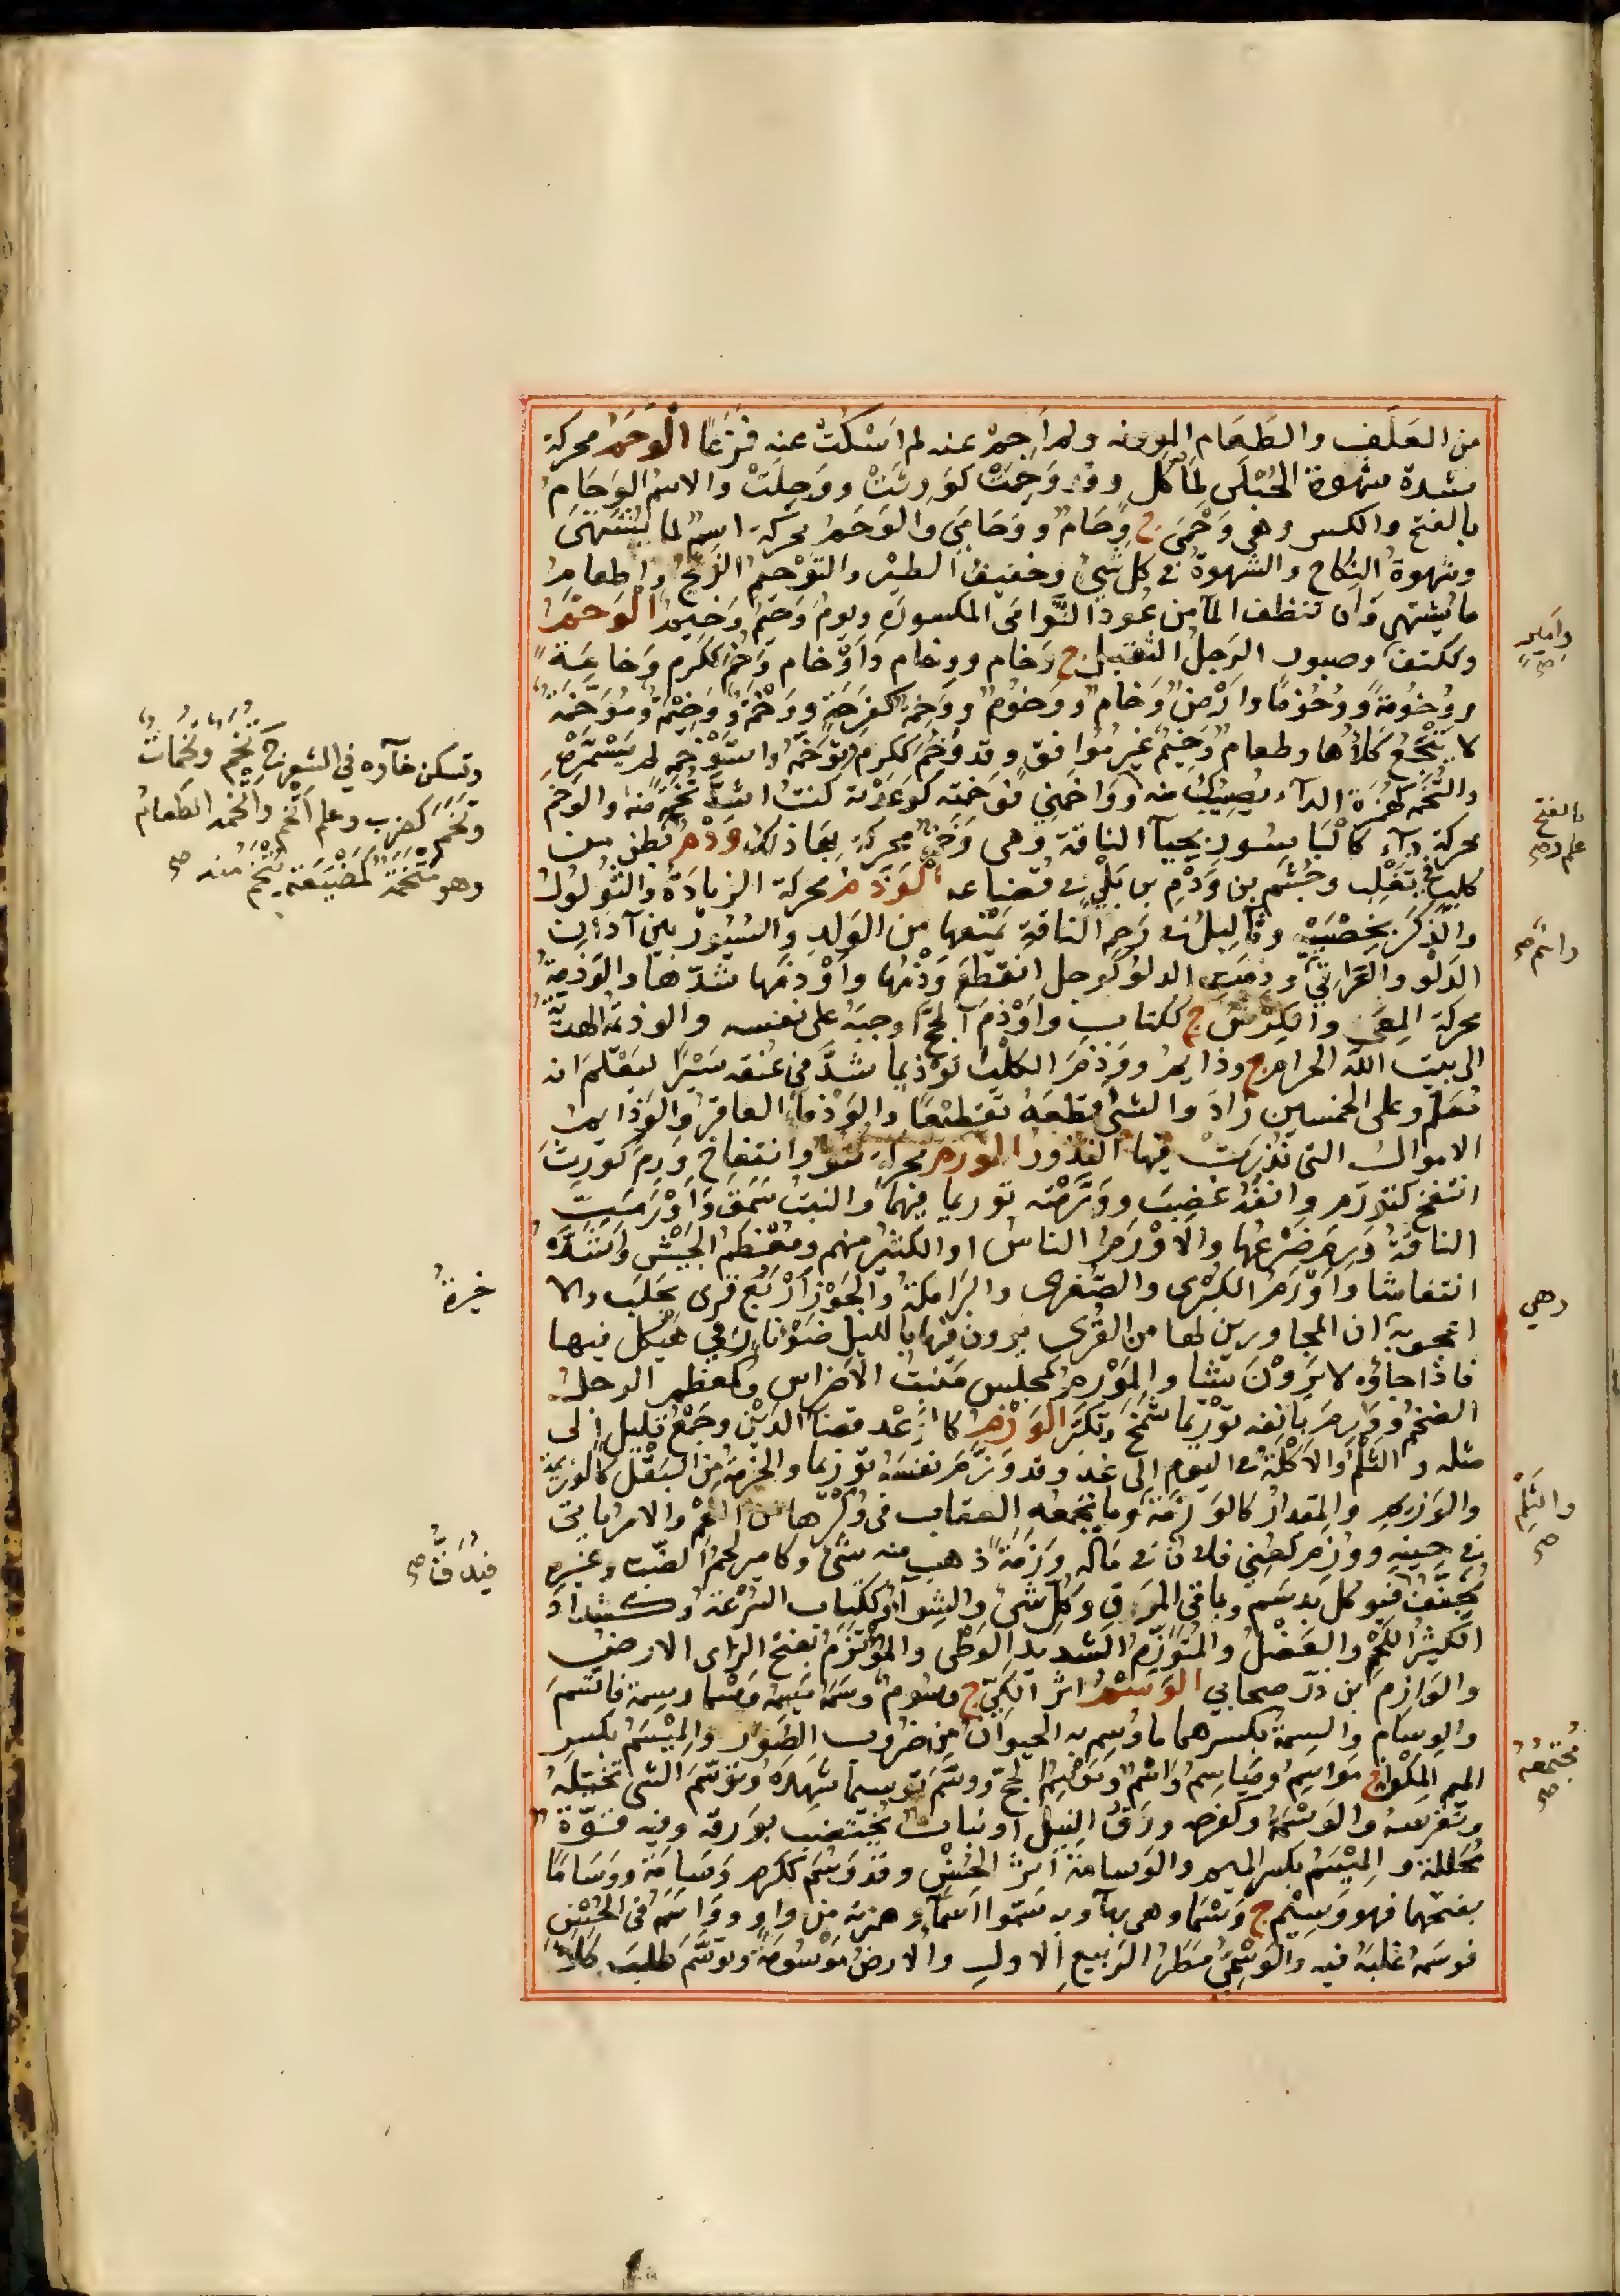 من العَلَف والطَعَام المورنه ولم اَجِمْ عنه لم اسْكُتْ عنه فَزَعًا الْوَحَمُ محركة
شدة شهوة الحُبْلَى لِمَأْكَلٍ وقد وَحِمَتْ كوَرِثَتْ ووَجِلَتْ والاسم الوَحَامُ
بالفتح والكسر وهى وَحْمَى ج وِحَامٌ ووَحَامَى والوَحَمُ محركة اسم لما يُشْتَهَى
وشهوةُ النِكاح والشهوةُ فى كل شئ وحفيفُ الطير والتَوْحيمُ الذبح وإطعامُ
ما يُشتهى وان تنظف المآ من عُود النَّوامى المكسورة ويومٌ وَحيمٌ وَخيمٌ الْوَخْمُ
وككتف وصبور الرَجلُ الثقيل ج وَخام ووِخام وَاَوْخام وَخُمَ ككَرم وَخامَةً
ووُخُومَةً ووُخُومًا وارْضٌ وَخامٌ ووَخومٌ ووَخِمَةٌ كفَرِحَةٍ ووَخْمَةٌ ووَخيمَةٌ ومُوَخَّمَةٌ
لا يَنْجَعُ كَلأُها وطعامٌ وَخيمٌ غير مُوافق وقد وَخُمَ ككرم وتَوَخَّمَهُ واسْتَوْخَمَه لم يَسْتَمْرِهْ
والتُّخَمَة كهُمَزَة الداء يصيبك منه ووَاخَمَنِي فوَخَمْته كوَعَدْته كنتُ اشدَّ تُخَمَةً منه والوَخَم
محركة داء كالبَاسُور بحياء الناقة وهى وَخِمَة محركة بِهَا ذلك وَدْمٌ بطن من
كلب فى تَغْلِب وجُشَم بن وَدْم بن بَلِيّ فى قُضاعه الْوَذَمُ محركة الزيادَة والثُّولُول
والذَكَرُ بخُصْيَيْهِ وثآليلُ فى رَحِم الناقة تَمْنَعها من الوَلدِ والسُيُور بين آذان
الدَلْو والعَرَاقِيّ ووذمت الدلو كوجل انقطعَ وَذَمُها واَوْذَمَها شدّها والوَذَمَةُ
محركة المِعَى والكِرش ج ككتاب واَوْذَمَ الحجّ اوجبَهُ على نفسه والوذيمة الهديّة
الى بيت الله الحرام ج وذايم ووَذَّمَ الكلب توذيما شدَّ فى عُنقه سَيْرًا ليَعْلَم انه
مُعَلَّم وعلى الخمسين زادَ والشئ قطعَه تقطيعًا والوَذْماء العاقرُ والوَذايم
الاموال التى نُذِرَتْ فيها النُذور الْوَرَم محركة نتو وانتفاخ وَرِمَ كوَرِثَ
انتفخ كتورم وانفُه غضِبَ ووَرَّمْته توريما فيهما والنبت سَمَقَ واَوْرَمَتِ
الناقةُ وَرِمَ ضَرْعُها والاَوْرَمُ الناسُ او الكثيرُ منهم ومُعْظَمُ الجَيْش واشدّه
انتفاشا واَوْرَمُ الكبْرى والصُغرى والبَرامكة والجَوْز اَرْبَع قرى بحَلَب والا
اعجوبة ان المجاورين لها من القُرى يرون فيها بالليل ضَوْءَ نار فى هَيكل فيها
فاذا جاؤه لا يَرَوْن شيئا والمَوْرِم كمجلس مَنبت الاضراس وكمعظم الرجل
الضخم ووَرَّمَ بانفه توْريما شَمَخ وتكبَّر الْوَزْم كالوَعْد قضاء الدَيْن وجَمْعُ قليل الى
مثله والثَلْم والاَكْلة فى اليوم الى غد وقد وَزَّمَ نفسَه توزيما والحُزمة من البَقْل كالوزيمة
والوَزيم والمِقدارُ كالوَزْمَة وما تَجمعه العقاب فى وَكْرِها من اللحم والامرُ ياتى
فى حينه ووُزِم كعُنِي فلان فى ماله وَزْمَةً ذهب منه شئ وكامير لحمُ الضَبّ وغيره
يُجَفَّف فيوكل بدَسَم وباقى المرَق وكل شئ والشِواء وككتاب السُرْعة وكشداد
الكثيرُ اللحم والعَضَل والمُتوزِّم الشديد الوَطْى والمؤتَزَم بفتح الزاى الارض
والوَازِم بن ذرّ صحابي الوَسْم اثر الكَيّ ج وسُوم وسَمَه يَسِمُه وَسْما وسِمة فاتَّسَم
والوِسام والسِمة بكسرهما ما وُسِم به الحيوان من ضُروب الصُوَر والمِيْسَم بكسر
الميم المِكْواة ج مَواسِمُ ومَيَاسِمُ واسمٌ ومَوْسِمُ الحجّ ووسَّم توسيما شَهِدَهُ وتوسَّمَ الشئ تخيَّلَهُ
وتَفَرَّسه والوَسْمة وكفرحه ورَقُ النِيل او نبات يُخْتَضب بوَرَقه وفيه قُوَّة
مُحلِلة والمِيْسَم بكسر الميم والوَسامة اثرُ الحُسْن وقد وَسُم ككرم وَسَامَة ووَسَامًا
بفتحهما فهو وَسِيْم ج وَسْمَا وهى بهآ وبه سَمّوا اسْماء وهمزته من واو ووَاسَمه فى الحُسْن
فوَسَمه غلبَه فيه والوَسْمِيّ مَطرُ الرَبيع الاول والارض مَوْسُومة وتوَسَّم طلبَ كلأ
وتسكن خآوه فى الشعر ج تُخَمٌ وتُخَماتٌ
وتَخَمَ كضرب وعلم اتخم واَتْخَمه الطعامُ
وهو مَتْخَمَةٌ كمَصْنَعَة يُتْخَمُ منه صح
خيرة
وامير صح
بالفتح
علم وصح
وائم صح
وهى
والثَلِم
صح